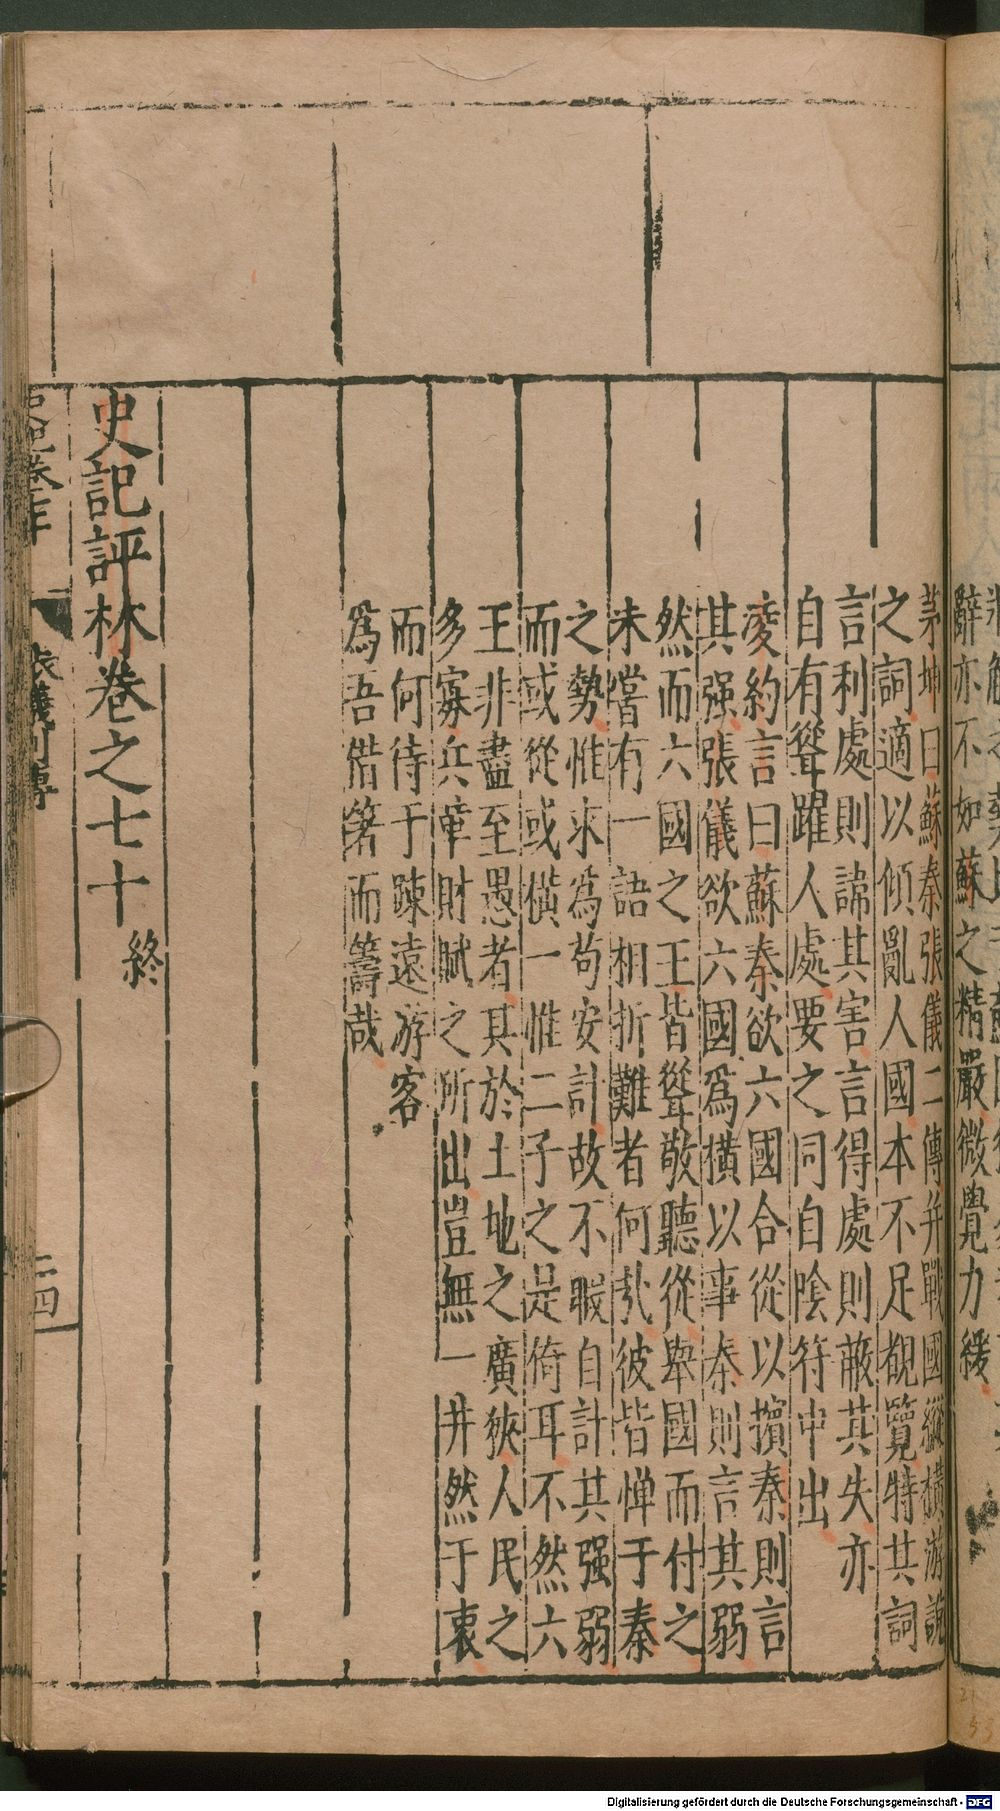 辭亦不如蘇之精嚴微覺力緩
茅坤曰蘇秦張儀二傳并戰國縱橫游說
之詞適以傾亂人國本不足覩覽特其詞
言利處則諱其害言得處則蔽其失亦
自有聳躍人處要之同自陰符中出
凌約言曰蘇秦欲六國合從以擯秦則言
其强張儀欲六國爲橫以事秦則言其弱
然而六國之王皆聳敬聽從舉國而付之
未嘗有一語相折難者何㢤彼皆惮于秦
之勢惟求爲苟安計故不暇自計其强弱
而或從或橫一惟二子之是倚耳不然六
王非盡至愚者其於土地之廣狹人民之
多寡兵車財賦之所出豈無一井然于衷
而何待于踈遠游客
爲吾借箸而籌哉
史記評林卷之七十終
張儀列傳
二四
21
53
Digitalisierung gefördert durch die Deutsche Forschungsgemeinschaft - DFG